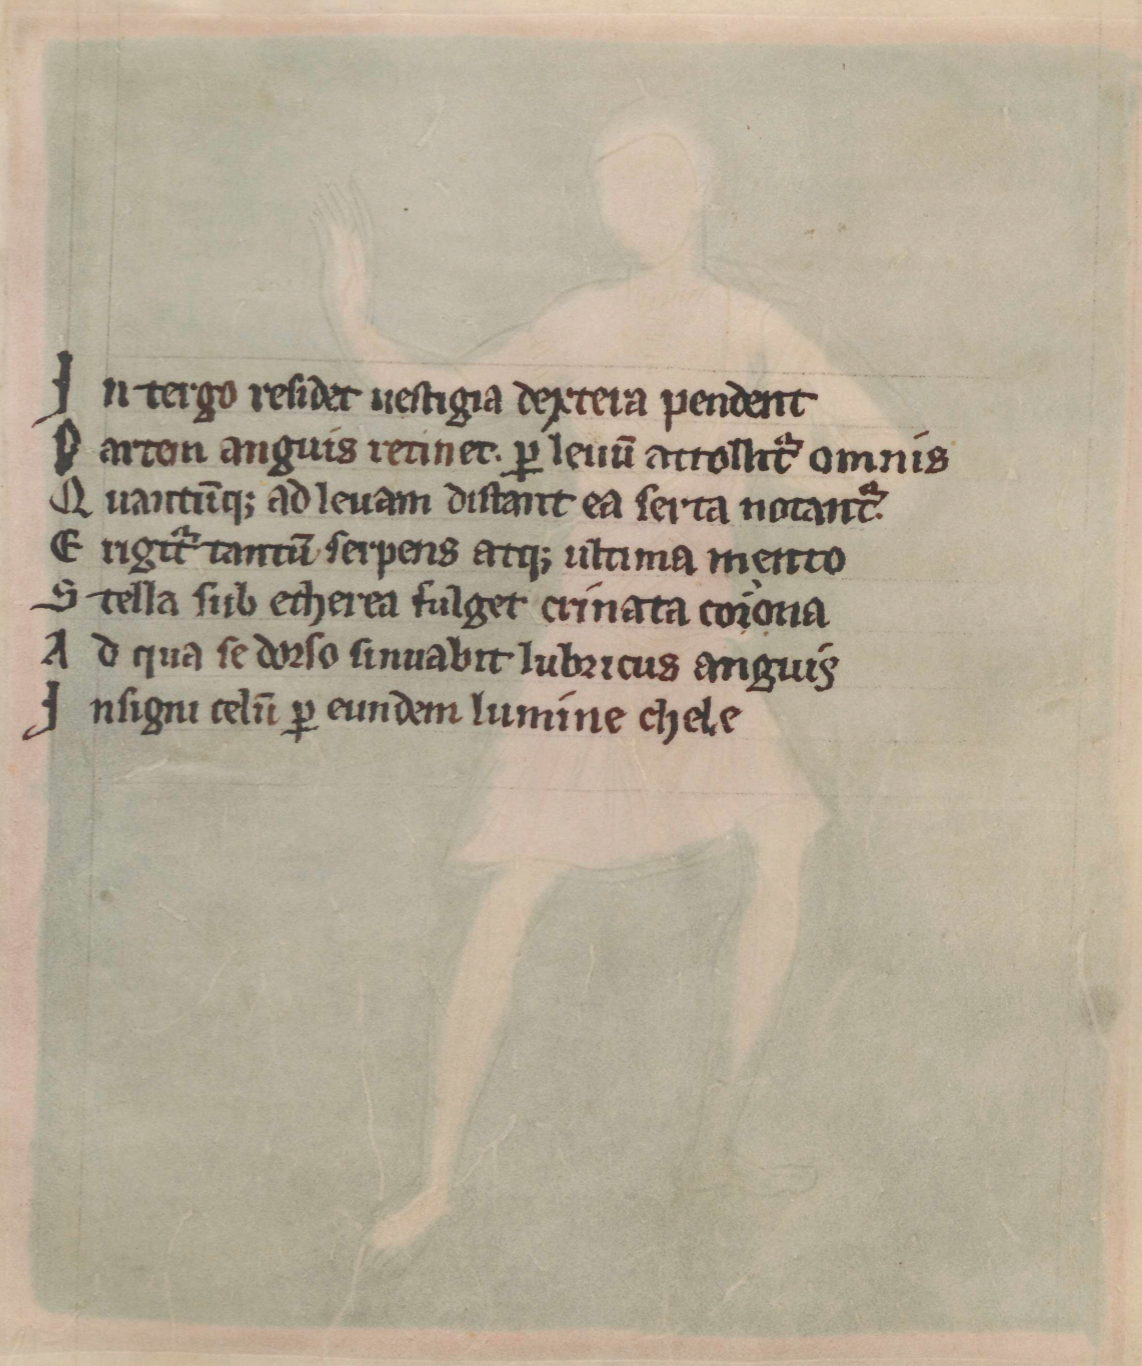 In tergo residet uestigia dextera pendent
Partem anguis retinet. ꝑ leuũ attollitᷓ omnis
Quantũq; ad leuam distant ea serta notantᷓ.
Erigitᷓ tantũ serpens atq; ultima mento
Stella sub etherea fulget crinata corona
Ad qua se dorso sinuabit lubricus anguis
Insigni celũ ꝑ eundem lumine chele